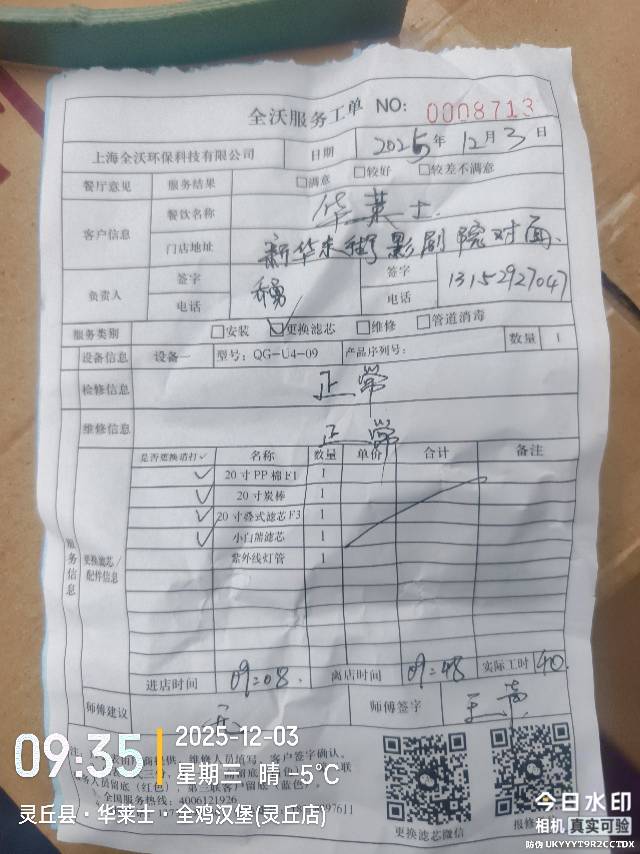 全沃服务工单 NO: 0008713
上海全沃环保科技有限公司 日期 2025年 12月3日
餐厅意见 服务结果 □满意 □较好 □较差不满意
客户信息 餐饮名称 华莱士
门店地址 新华东街影剧院对面
负责人 签字 签字
电话 电话 13152927047
服务类别 □安装 ☑更换滤芯 □维修 □管道消毒
设备信息 设备一 型号: QG-U4-09 产品序列号: 数量 1
检修信息 正常
维修信息 正常
服务信息
更换滤芯/配件信息
是否更换请打✓ 名称 数量 单价 合计 备注
✓ 20寸PP棉F1 1
✓ 20寸炭棒 1
✓ 20寸叠式滤芯F3 1
✓ 小白滤芯 1
紫外线灯管 1
进店时间 09:08 离店时间 09:48 实际工时 40
师傅建议 无 师傅签字
注:
维修人员填写,客户签字确认。
人员留底(红色),第三联客户留底(蓝色)。
全国服务热线: 4006121926
97611
更换滤芯微信
报修
09:35 2025-12-03
星期三 晴 -5℃
灵丘县·华莱士·全鸡汉堡(灵丘店)
今日水印
相机 真实可验
防伪 UKYYYT9R2CCTDX